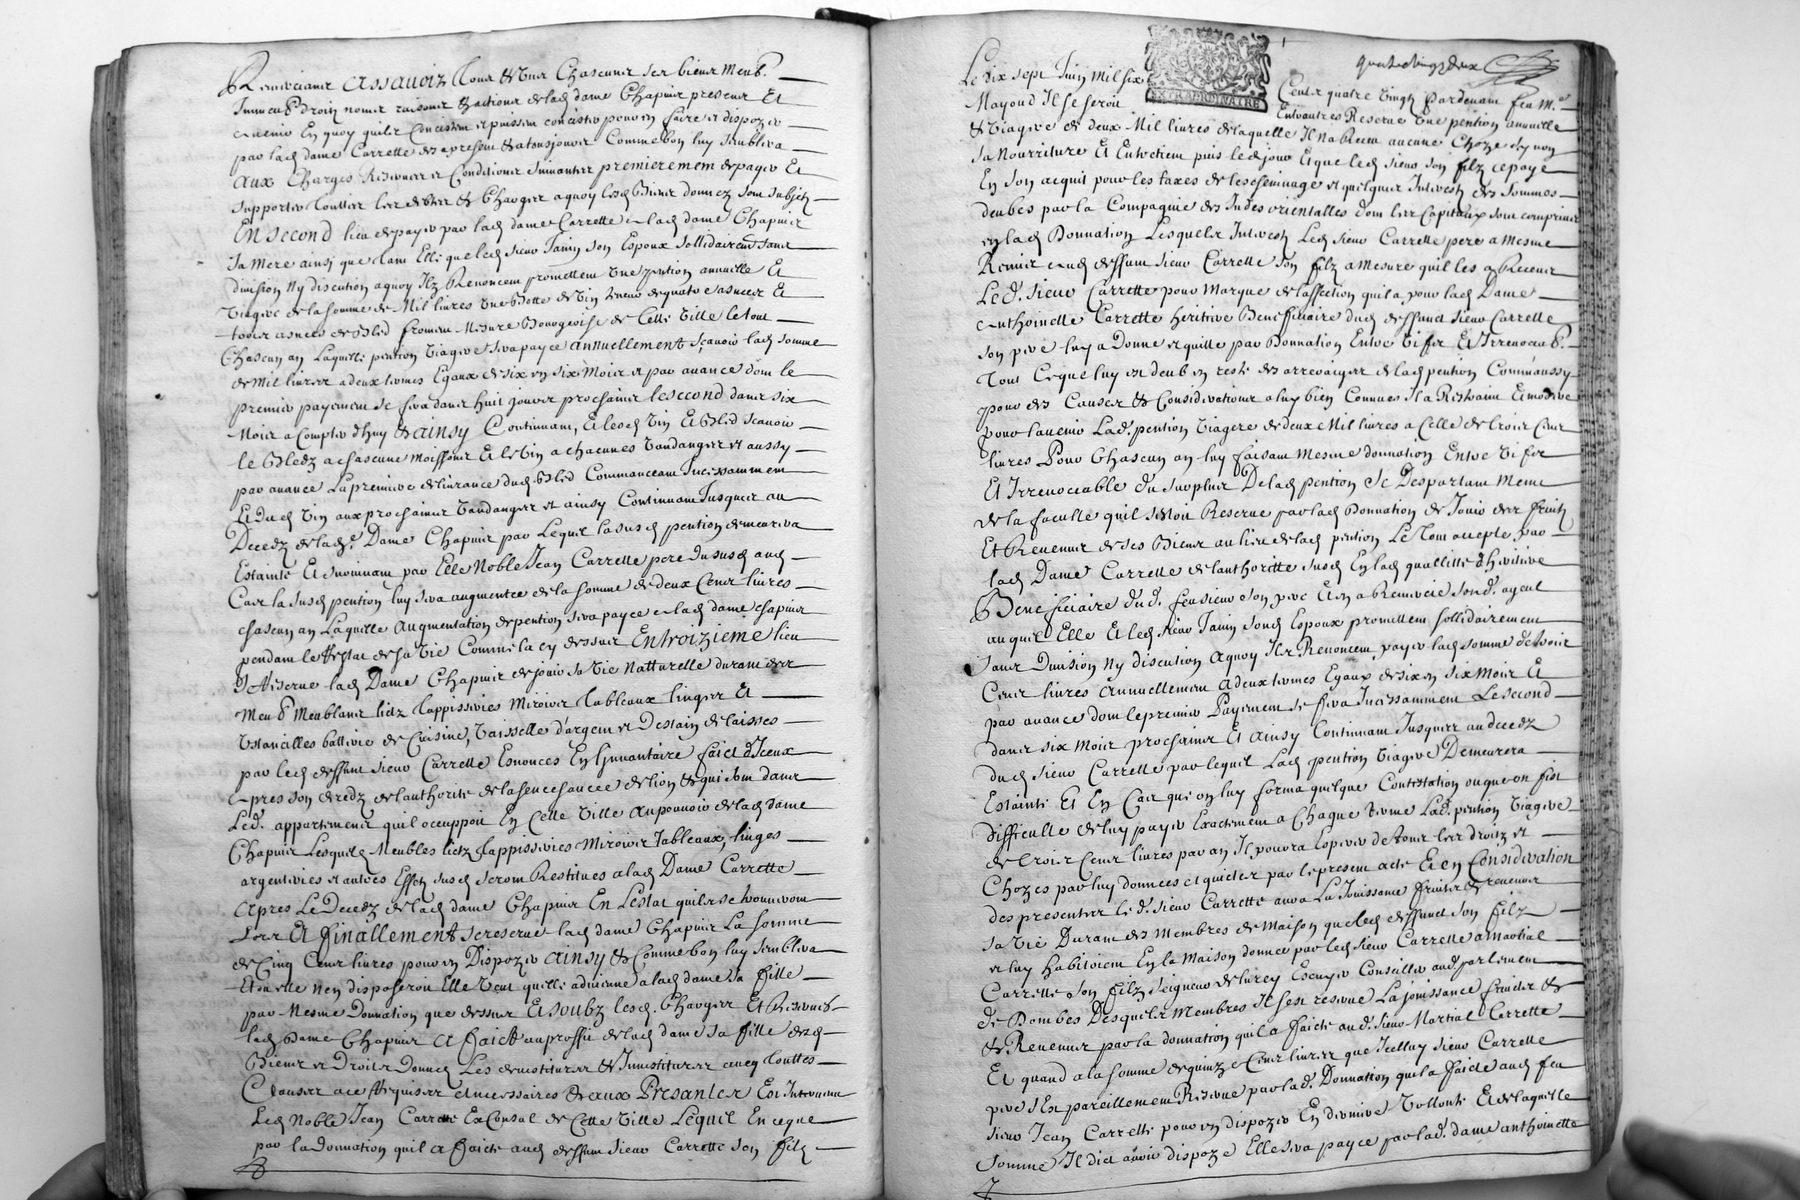 Remerciant Assavoir Tous & Uns Chascuns ses biens Meub.
Immeub droits noms raisons & actions de lad dame Chapuis presens Et
avenir En quoy quils Concistent et puissent concister pouvoir faire et dispozer
par lad dame Carrette des apresent & atousjours Comme bon luy semblera
Aux Charges Reserves et Conditions suivantes premierement de payer Et
supporter touttes les debtes & Charges aquoy lesd Biens donnez sont subjets
En second lieu de payer par lad dame Carrette a lad dame Chapuis
sa mere ainsi que tant Elle que led sieur Janin son Espoux sollidairement sans
division Ny discution aquoy Ilz Renoncent promettent Une pention annuelle Et
Viagere de la somme de Mil livres Une Botte de Vin
de Bled froment Mesure Bourgeoise de Cette Ville le tout
Chascun an Laquelle pention Viagere sera payée annuellement sçavoir lad somme
de Mil livres a deux termes Egaux de six en six Mois et par avance dont le
premier payement se fera dans huit jours prochains le second dans six
Mois a Compter d'huy & ainsy Continuant, Et lesd Vin Et Bled scavoir
le Bledz a chascune moissons Et le Vin a chacunes Vandanges et aussy
par avance La premiere delivrance dud Bled Commanceant Incessamment
Et Dud Vin aux prochaines Vandanges et ainsy Continuant Jusques au
Decedz de lad. Dame Chapuis par Lequel la susd pention demeurera
Estainte Et survivant par Elle Noble Jean Carrette pere Dususd aud
Cas la susd pention luy sera augmentée de la somme de deux Cens livres
chascun an Laquelle Augmentation de pention sera payée a lad dame chapuis
pendant le Restat de sa Vie Comme la cy dessus En troizieme lieu
se Reserve lad Dame Chapuis de jouir sa Vie Natturelle durant des
Meub Meublans lictz Tappisseries Miroirs Tableaux linges Et
Ustancilles batterie de Cuisine, Vaisselle d'argent et Destain delaissés
par led deffunt sieur Carrette Enoncés En Linvantaire faict d'Iceux
apres son decedz de lauthorite de la senechaucée de lion & qui sont dans
Led. appartement quil occuppoit En Cette Ville au pouvoir de lad dame
Chapuis Lesquels Meubles lictz Tappisseries Miroirs Tableaux, linges
argenteries et autres Effets susd seront Restitués a lad Dame Carrette
Apres Le Decedz de lad dame Chapuis En Lestat quils se trouveront
lors Et finallement se reserve lad dame Chapuis La somme
de Cinq Cens livres pour en Dispozer ainsy & Comme bon luy semblera
Et ou elle n'en disposeroit Elle Veut quelle advienne a lad dame sa fille
par Mesme Donnation que dessus Et soubz lesd. Charges Et Reserves
lad Dame Chapuis a faict au proffit de lad dame sa fille desd
Biens et Droits Donnés Les devestitures & Investitures avec touttes
Clauses a ce Requises et necessaires & aux Presantes Est Intervenu
Led Noble Jean Carrette Ex Consul de Cette Ville Lequel En ce que
par la donnation quil a faicte aud deffunt sieur Carrette son filz
quatrevingt deux
EXTRAORDINAIRE
Le dix sept Juin Mil six Cens quatre Vingts pardevant feu Me
Mayoud Il se seroit Entr'autres Reservé Une pention annuelle
& Viagere de deux Mil livres de laquelle Il na Receu aucune Choze synon
sa Nourriture Et Entretien puis led jour Et que led sieur son filz a payé
En son acquit pour les taxes de Interests des sommes
deubes par la Compagnie des Indes orientalles dont les Capitaux sont comprins
en lad Donnation Lesquels Interests Led sieur Carrette pere a Mesme
Remis aud deffunt sieur Carrette son filz a mesure quil les a Receus
Led. sieur Carrette pour Marque de laffection quil a pour lad Dame
Anthoinette Carrette heritiere Beneficiaire dud deffunct sieur Carrette
son pere luy a Donné et quitté par Donnation Entre Vifs Et Irrevocab.
Tout Ce que luy est deub en reste des arrerages de lad pention Comm'aussy
pour des Causes & Considerations a luy bien Connues Il a Restraint Et moderé
pour lavenir Lad. pention Viagere de deux Mil livres a Celle de trois Cens
livres Pour Chascun an luy faisant Mesme donnation Entre Vifs
Et Irrevocable Du surplus De lad pention Se Despartant Mesme
de la faculté quil s'estoit Reservé par lad Donnation de Jouir des fruits
Et Revenus de ses Biens au lieu de lad pention Le Tout accepté par
lad Dame Carrette de lauthorité susd En lad quallitté d'heritiere
Beneficiaire dud. feu sieur son pere Et en a Remercié sond. ayeul
auquel Elle Et led sieur Janin sond Espoux promettent sollidairement
sans Division Ny discution Aquoy Ilz Renoncent, payer lad somme de trois
Cens livres Annuellement A deux termes Egaux de six en six Mois Et
par avance dont le premier Payement se fera Incessamment Le second
dans six Mois prochains Et ainsy Continuant Jusques au decedz
dud sieur Carrette par lequel Lad pention Viagere Demeurera
Estainte Et En Cas que on luy forma quelque Contestation ou que on fist
difficulté de luy payer Exactement a Chaque terme Lad. pention Viagere
de trois Cens livres par an Il pourra de tous les droits et
Chozes par luy données et quittés par le present acte Et en Consideration
des presentes led. sieur Carrette aura La Jouissance fruits & revenus
sa Vie Durant des Membres de Maison que led deffunct son filz
et luy habitoient En la Maison donnée par led sieur Carrette a Martial
Carrette son filz Seigneur de lurcy Escuyer Conseiller aud parlement
de Dombes Desquels Membres Il s'est reservé La joüissance fruits &
& Revenus par la donnation quil a faicte aud. sieur Martial Carrette
Et quand a la somme de quinze Cens livres que Icelluy sieur Carrette
pere s'Est pareillement Reservé par lad. Donnation quil a faicte aud feu
sieur Jean Carrette pour en dispozer En derniere Vollonté Et de laquelle
somme Il dict avoir dispozé Elle sera payée par lad. dame anthoinette